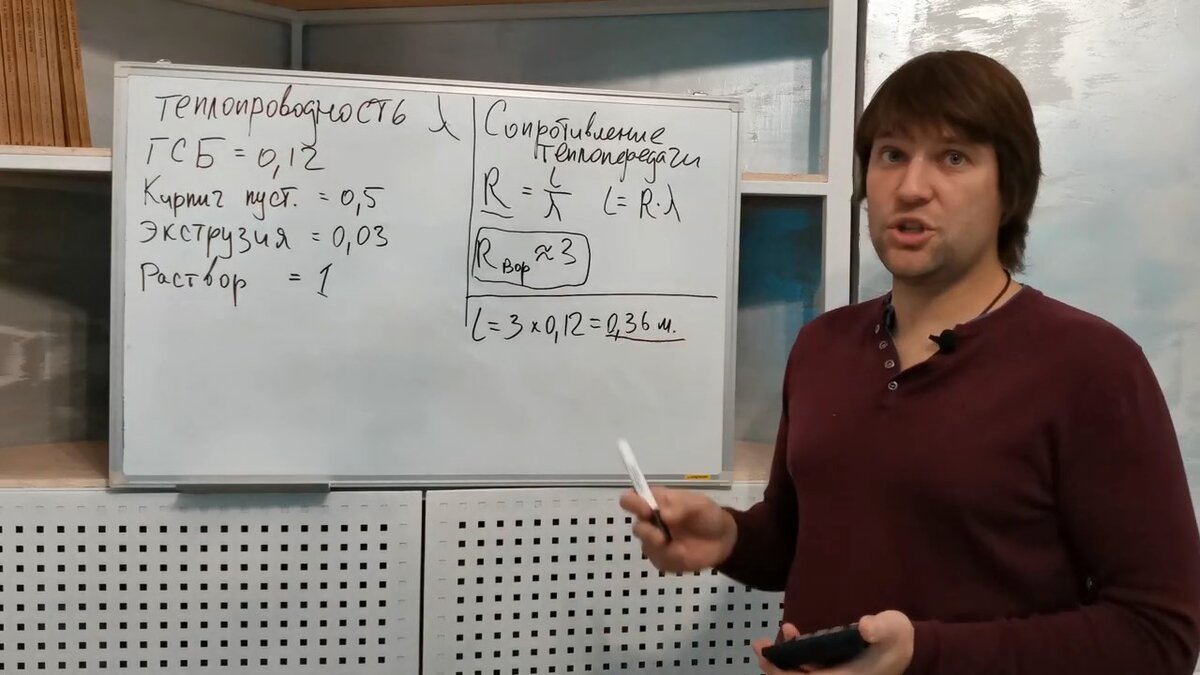 Теплопроводность λ
ГСБ = 0,12
Кирпич пуст. = 0,5
Экструзия = 0,03
Раствор = 1
Сопротивление
теплопередачи
R = l/λ l = R·λ
R Вор ≈ 3
l = 3 × 0,12 = 0,36 м.